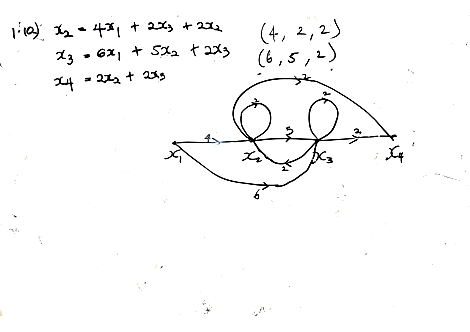 1·(a) x2 = 4x1 + 2x3 + 2x2 (4, 2, 2)
x3 = 6x1 + 5x2 + 2x3 (6, 5, 2)
x4 = 2x2 + 2x3
2
2 2
4 5 2
x1 x2 2 x3 x4
6